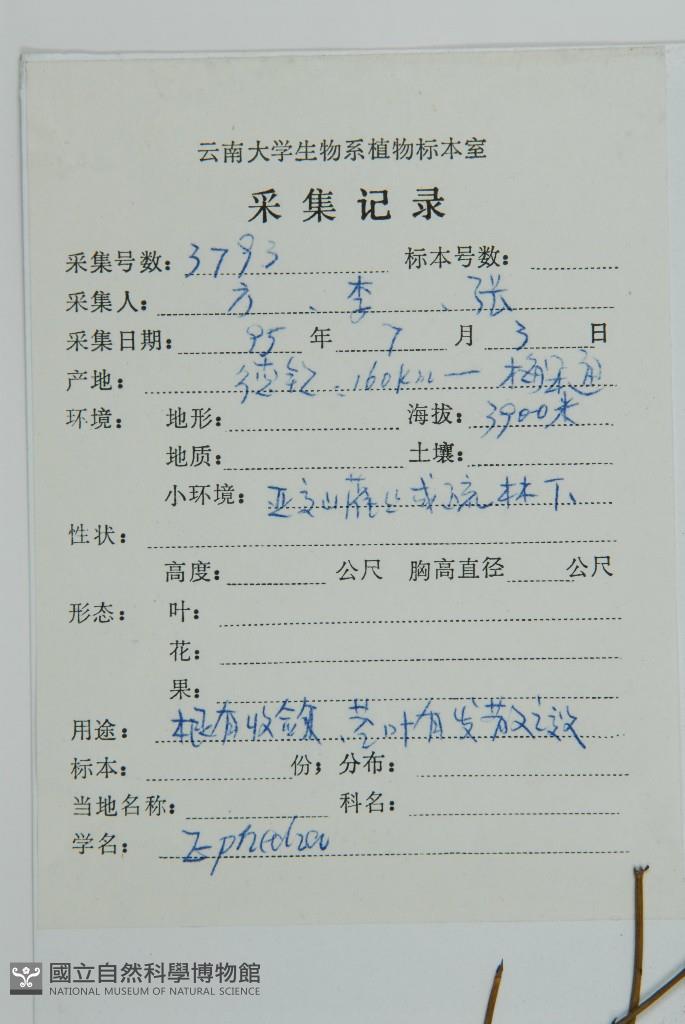 云南大学生物系植物标本室
采集记录
采集号数：3793 标本号数：
采集人：方、李、张
采集日期：95年7月3日
产地：德钦、160km—梅里
环境：地形： 海拔：3900米
地质： 土壤：
小环境：亚高山灌丛或疏林下、
性状：
高度： 公尺 胸高直径 公尺
形态：叶：
花：
果：
用途：根有收敛、茎叶有发散之效
标本： 份；分布：
当地名称： 科名：
学名：Ephedra
國立自然科學博物館
NATIONAL MUSEUM OF NATURAL SCIENCE